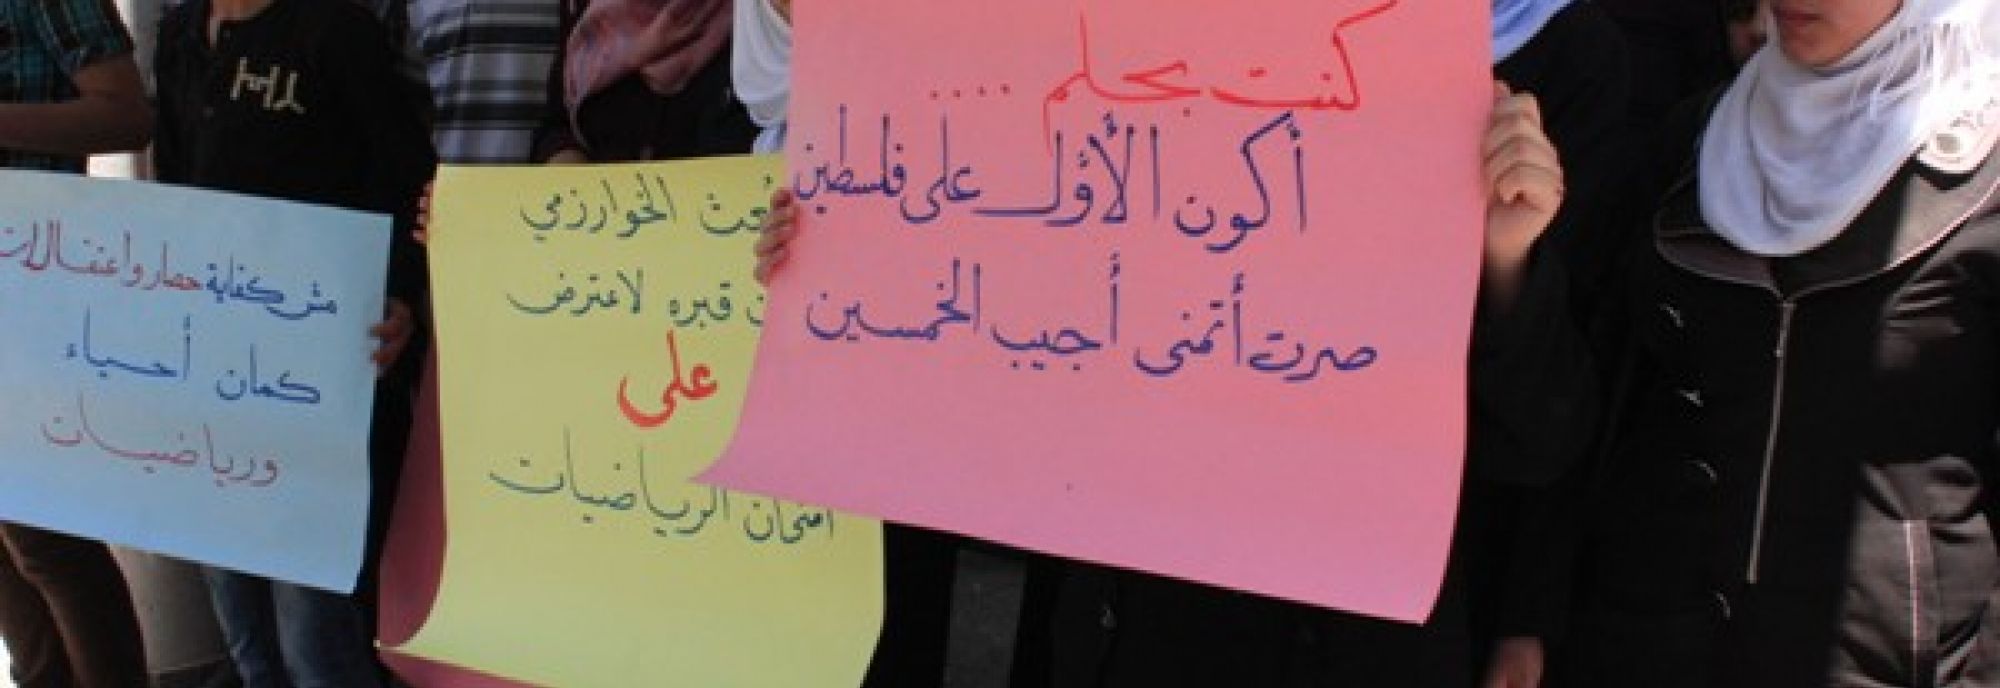 كنت بحلم ....
أكون الأول على فلسطين
صرت أتمنى أجيب الخمسين
بعث الخوارزمي
قبره لاعترض
على
امتحان الرياضيات
مش كفاية حصار واعتقالات
كمان أحياء
ورياضيات